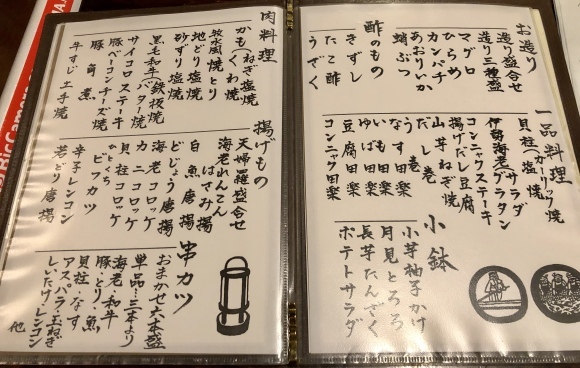 お造り
造り盛合せ
造り三種盛
マグロ
ひらめ
カンパチ
あおりいか
蛸ぶつ
酢のもの
きずし
たこ酢
うざく
一品料理
貝柱(ガーリック焼
塩焼
伊勢海老グラタン
サラダ
コンニャクステーキ
揚げだし豆腐
山芋ねぎ焼
だし巻
う巻
なす田楽
いも田楽
ゆば田楽
豆腐田楽
コンニャク田楽
小鉢
小芋柚子かけ
月見とろろ
長芋たんざく
ポテトサラダ
肉料理
かも(ねぎ塩焼
くわ焼
焼とり
地どり塩焼
砂ずり塩焼
黒毛和牛(鉄板焼
バター焼
サイコロステーキ
豚ベーコンチーズ焼
豚角煮
牛すじ土手焼
揚げもの
天婦羅盛合せ
海老れんこん
はさみ揚
白魚唐揚
どじょう唐揚
海老コロッケ
カニコロッケ
貝柱コロッケ
ひとくち
ビフカツ
辛子レンコン
若どり唐揚
串カツ
おまかせ六本盛
単品・三本より
海老・和牛
豚・とり・魚
貝柱・なす
アスパラ・玉ねぎ
しいたけ・レンコン
他
BicCamera